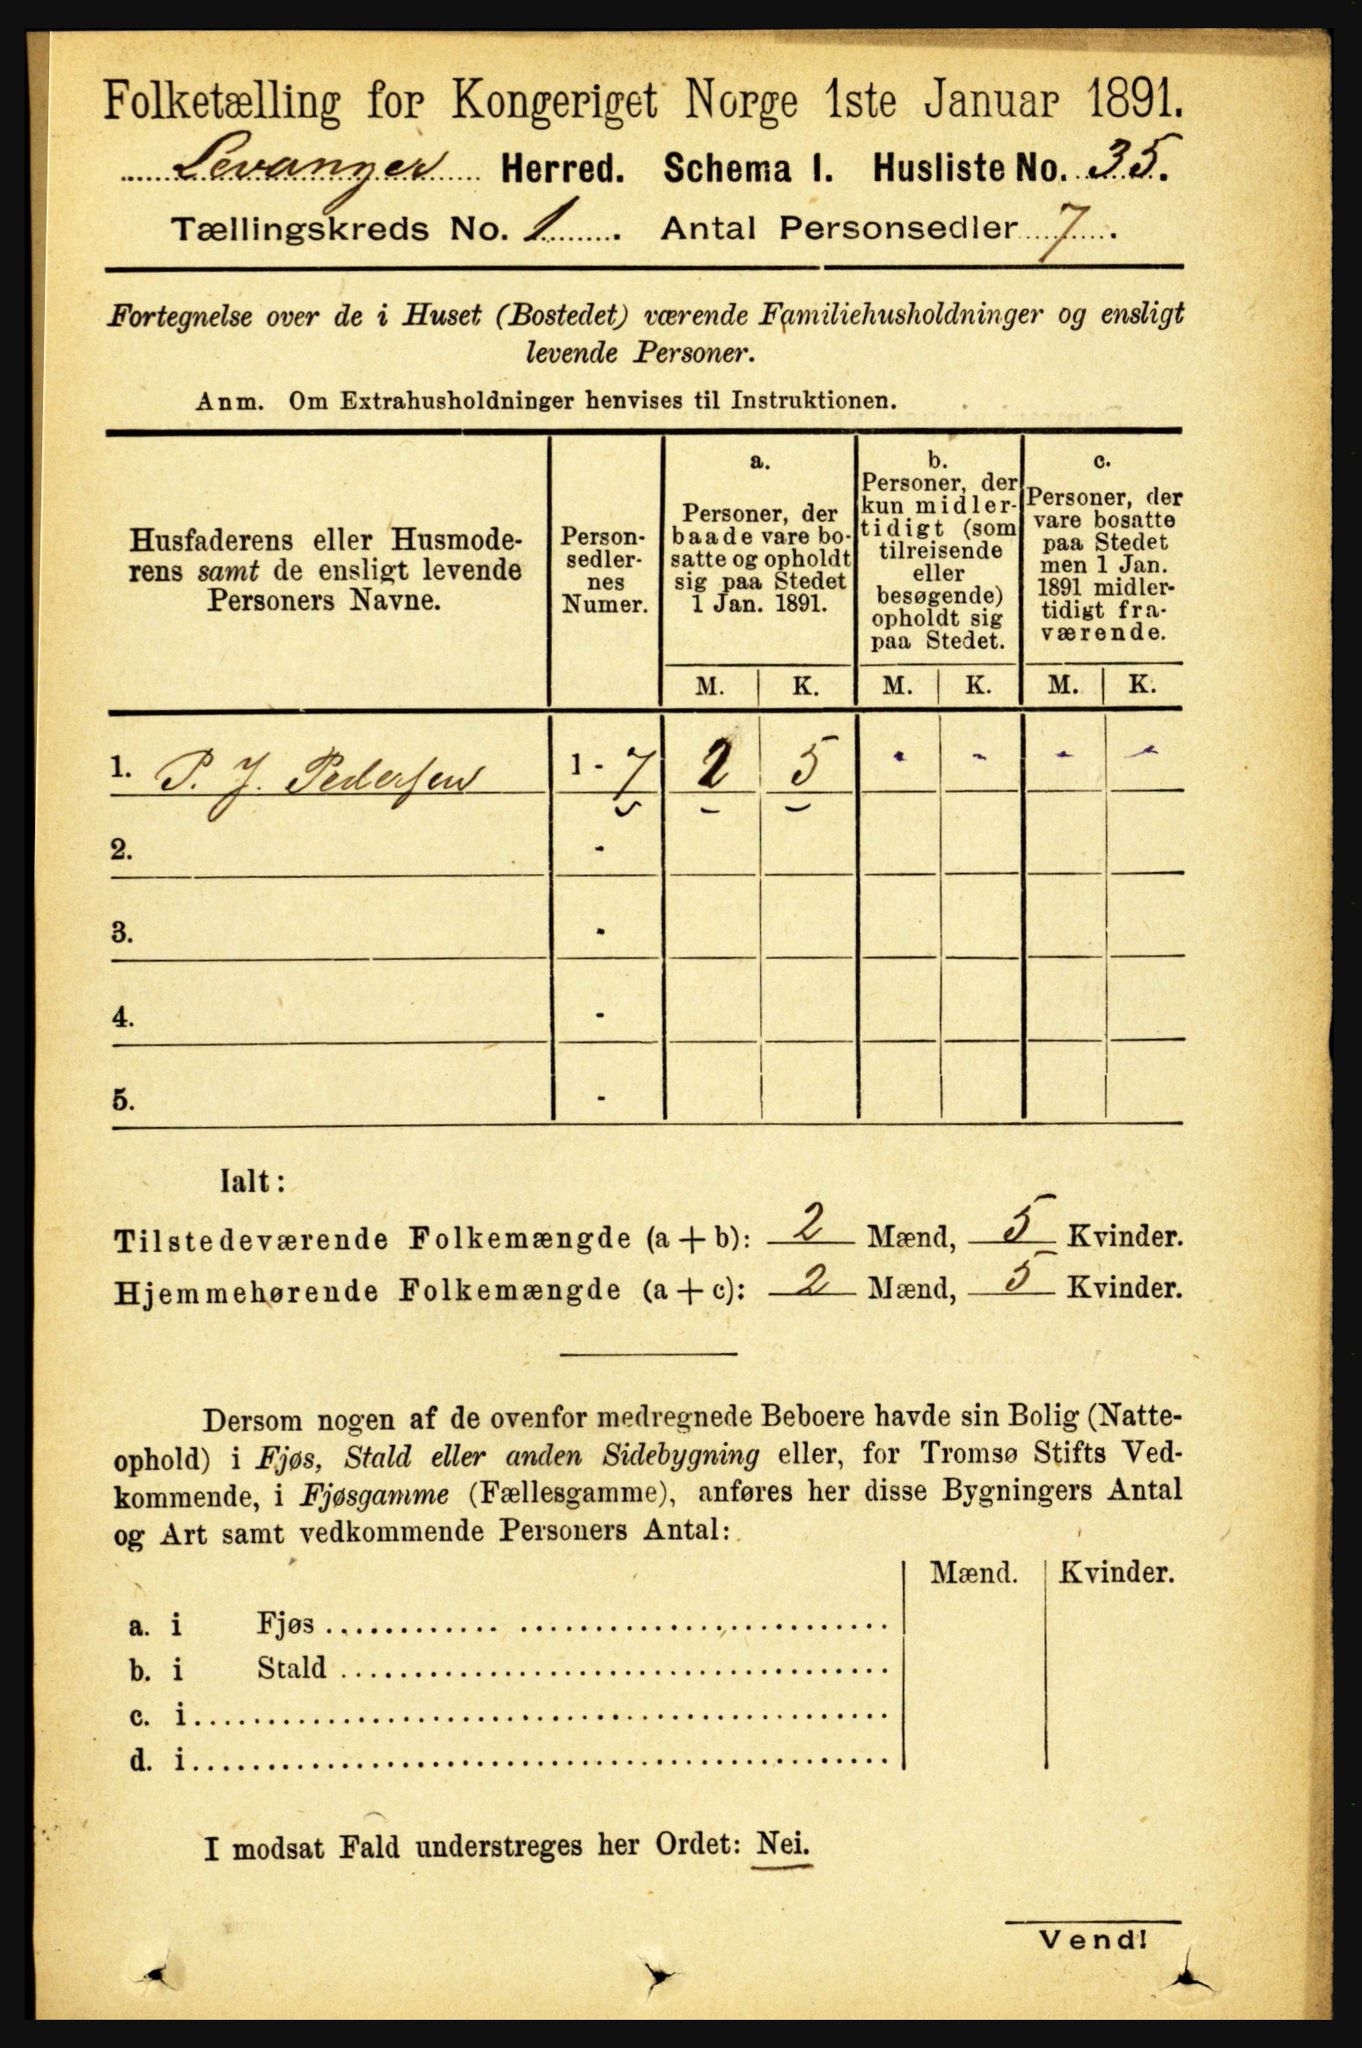 Folketælling for Kongeriget Norge 1ste Januar 1891.
Levanger Herred. Schema I. Husliste No. 35.
Tællingskreds No. 1. Antal Personsedler 7.
Fortegnelse over de i Huset (Bostedet) værende Familiehusholdninger og ensligt
levende Personer.
Anm. Om Extrahusholdninger henvises til Instruktionen.
Husfaderens eller Husmode-
rens samt de ensligt levende
Personers Navne.
Person-
sedler-
nes
Numer.
a.
Personer, der
baade vare bo-
satte og opholdt
sig paa Stedet
1 Jan. 1891.
b.
Personer, der
kun midler-
tidigt (som
tilreisende
eller
besøgende)
opholdt sig
paa Stedet.
c.
Personer, der
vare bosatte
paa Stedet
men 1 Jan.
1891 midler-
tidigt fra-
værende.
M. K. M. K. M. K.
1. P. J. Pedersen 1 - 7 2 5 - - - -
2. -
3. -
4. -
5. -
Ialt:
Tilstedeværende Folkemængde (a + b): 2 Mænd, 5 Kvinder.
Hjemmehørende Folkemængde (a + c): 2 Mænd, 5 Kvinder.
Dersom nogen af de ovenfor medregnede Beboere havde sin Bolig (Natte-
ophold) i Fjøs, Stald eller anden Sidebygning eller, for Tromsø Stifts Ved-
kommende, i Fjøsgamme (Fællesgamme), anføres her disse Bygningers Antal
og Art samt vedkommende Personers Antal:
Mænd. Kvinder.
a. i Fjøs
b. i Stald
c. i
d. i
I modsat Fald understreges her Ordet: Nei.
Vend!